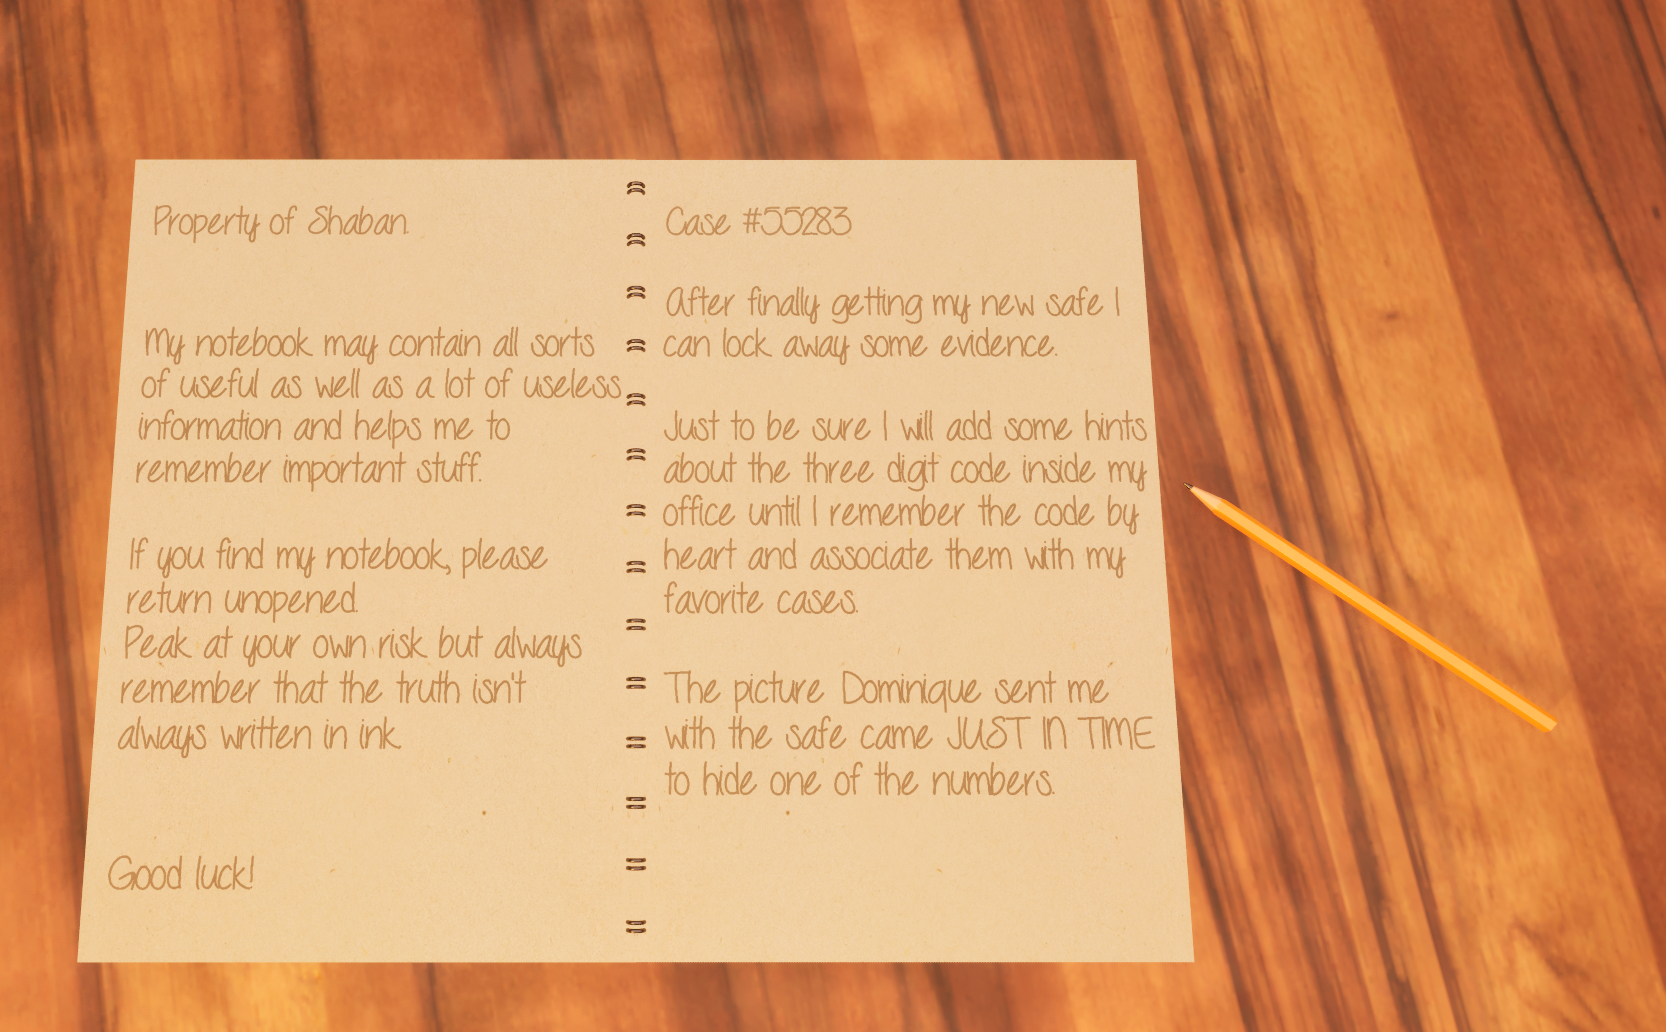 Property of Shaban.
My notebook may contain all sorts
of useful as well as a lot of useless
information and helps me to
remember important stuff.
If you find my notebook, please
return unopened.
Peak at your own risk but always
remember that the truth isn't
always written in ink.
Good luck!
Case #55283
After finally getting my new safe I
can lock away some evidence.
Just to be sure I will add some hints
about the three digit code inside my
office until I remember the code by
heart and associate them with my
favorite cases.
The picture Dominique sent me
with the safe came JUST IN TIME
to hide one of the numbers.